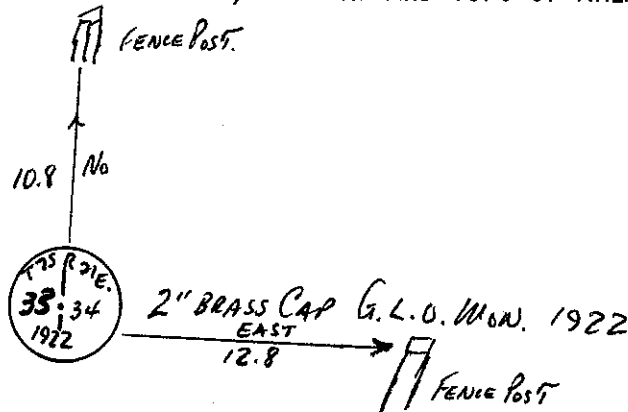 FENCE POST.
10.8 No
T7S R21E.
33 34
1922
2" BRASS CAP G.L.O. MON. 1922
EAST
12.8
FENCE POST